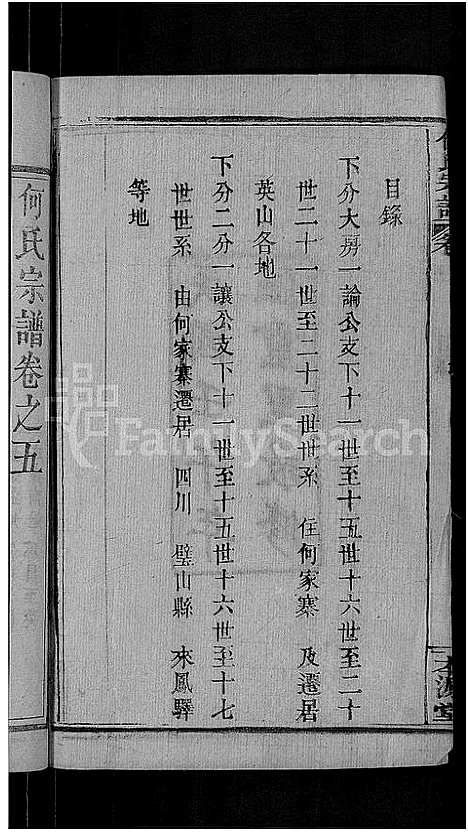 目錄
下分大房一論公支下十一世至十五世十六世至二十
世二十一世至二十二世世系 住何家寨 及遷居
英山各地
下分二分一讓公支下十一世至十五世十六世至十七
世世系 由何家寨遷居 四川 璧山縣 來鳳驛
等地
何氏宗譜卷之五
FamilySearch